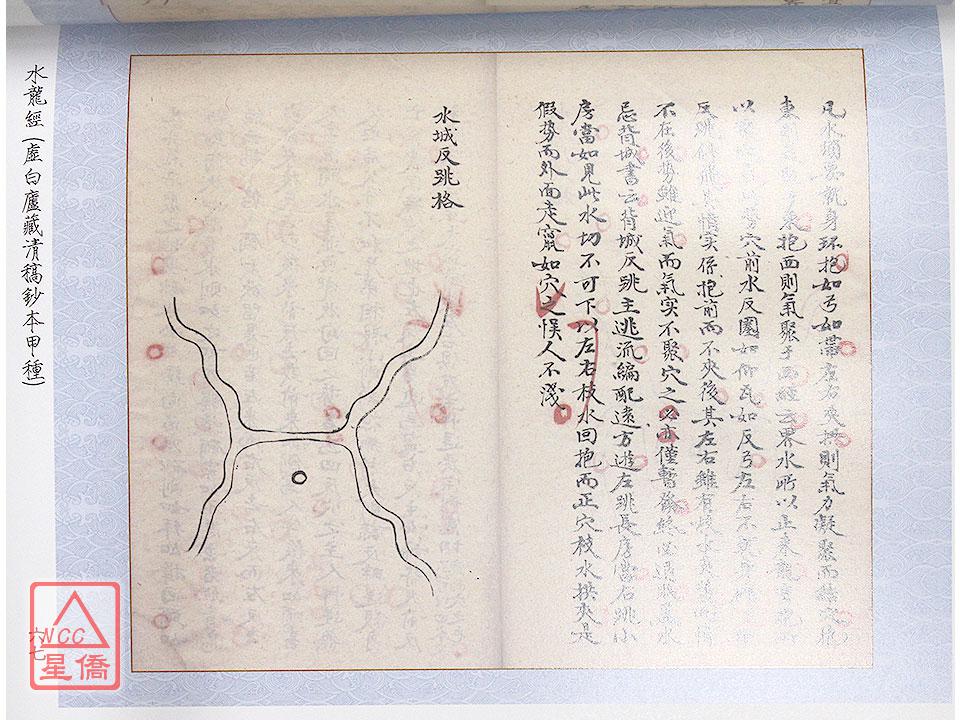 凡水須要就身环抱如弓如帶左右夾拱則氣力凝聚而結穴抱
東則氣聚于西經云界水所以止來龍
以穴前水反圈如仰瓦如反弓左右不
反跳其情实係抱前而不夾後其左右雖有枝水
不在後势雖迎氣而氣实不聚穴之必主僅暫發終
忌背城書云背城反跳主逃流編配遠方遊左跳長房當右跳小
房當如見此水切不可下以左右枝水回抱而正穴枝水拱夾是
假势而外面走竄如穴之悞人不淺
水城反跳格
水龍經(虛白廬藏清稿鈔本甲種)
六七
NCC
星僑